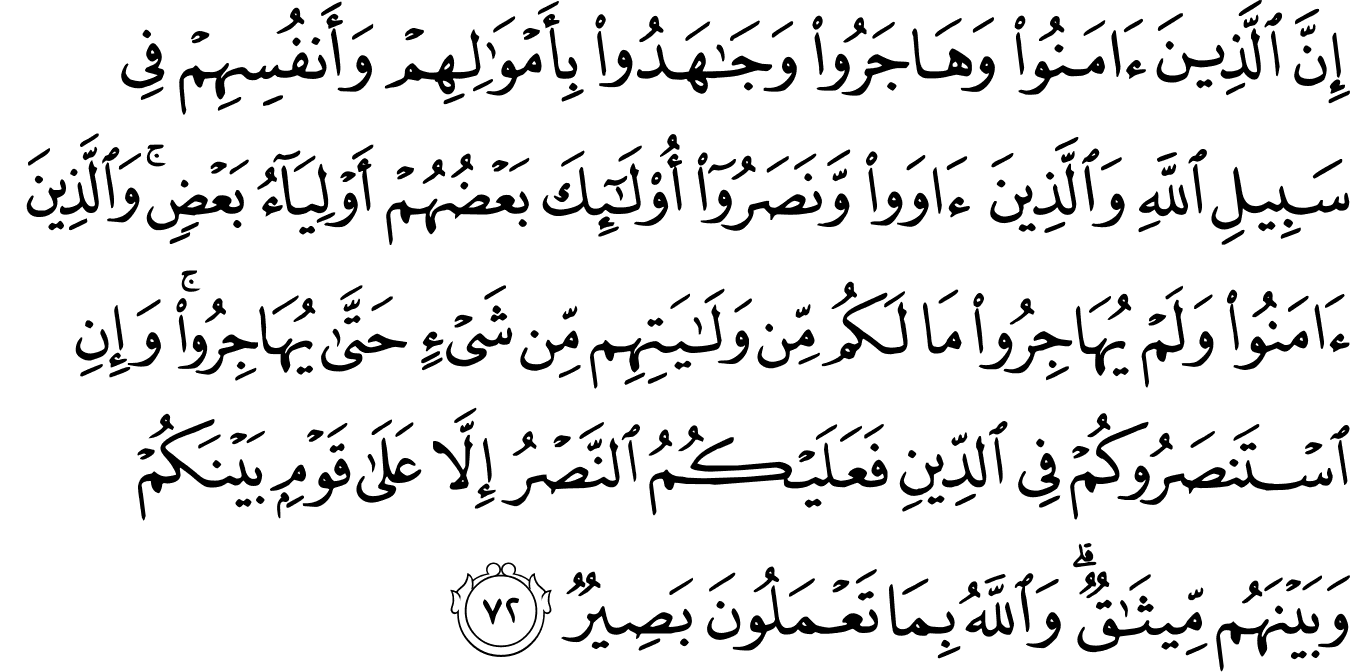 إِنَّ ٱلَّذِينَ ءَامَنُوا۟ وَهَاجَرُوا۟ وَجَـٰهَدُوا۟ بِأَمْوَٰلِهِمْ وَأَنفُسِهِمْ فِى
سَبِيلِ ٱللَّهِ وَٱلَّذِينَ ءَاوَوا۟ وَّنَصَرُوٓا۟ أُو۟لَـٰٓئِكَ بَعْضُهُمْ أَوْلِيَآءُ بَعْضٍ ۚ وَٱلَّذِينَ
ءَامَنُوا۟ وَلَمْ يُهَاجِرُوا۟ مَا لَكُم مِّن وَلَـٰيَتِهِم مِّن شَىْءٍ حَتَّىٰ يُهَاجِرُوا۟ ۚ وَإِنِ
ٱسْتَنصَرُوكُمْ فِى ٱلدِّينِ فَعَلَيْكُمُ ٱلنَّصْرُ إِلَّا عَلَىٰ قَوْمٍۭ بَيْنَكُمْ
وَبَيْنَهُم مِّيثَـٰقٌ ۗ وَٱللَّهُ بِمَا تَعْمَلُونَ بَصِيرٌ ٧٢